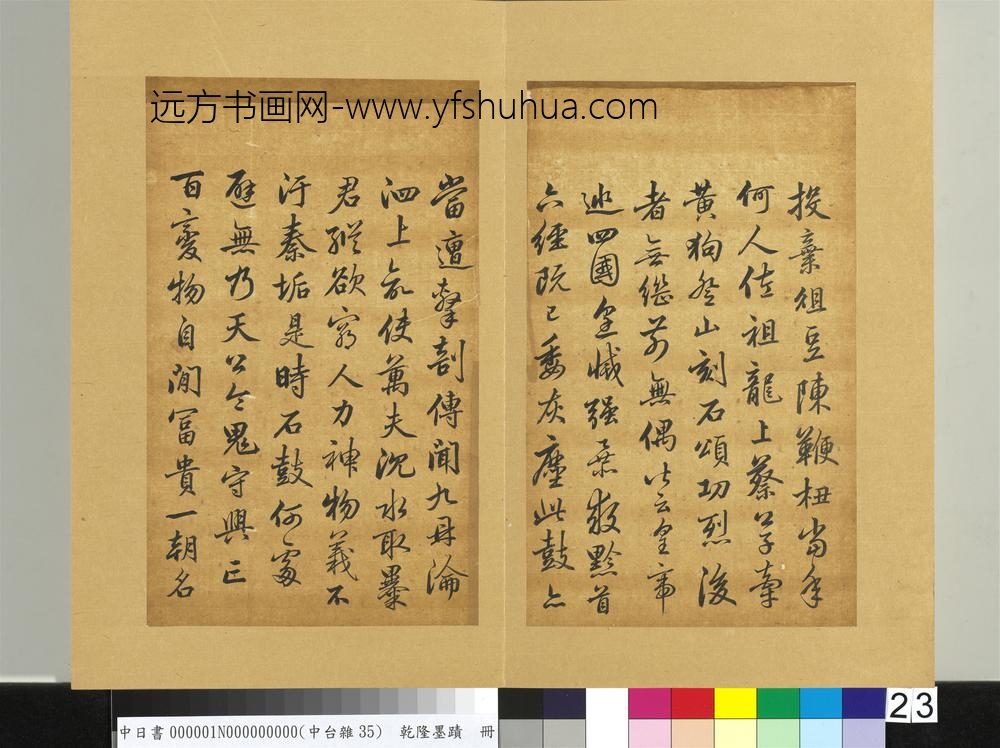 远方书画网-www.yfshuhua.com
投棄俎豆陳鞭杻當年
何人佐祖龍上蔡公子牽
黃狗登山刻石頌功烈後
者無繼前無偶皆云皇帝
巡四國烹滅强暴救黔首
六經既已委灰塵此鼓亦
當遭擊剖傳聞九鼎淪
泗上欲使萬夫沉水取暴
君縱欲窮人力神物義不
汙秦垢是時石鼓何處
避無乃天公令鬼守興亡
百變物自閒富貴一朝名
23
中日書000001N000000000(中台雜35) 乾隆墨蹟 冊